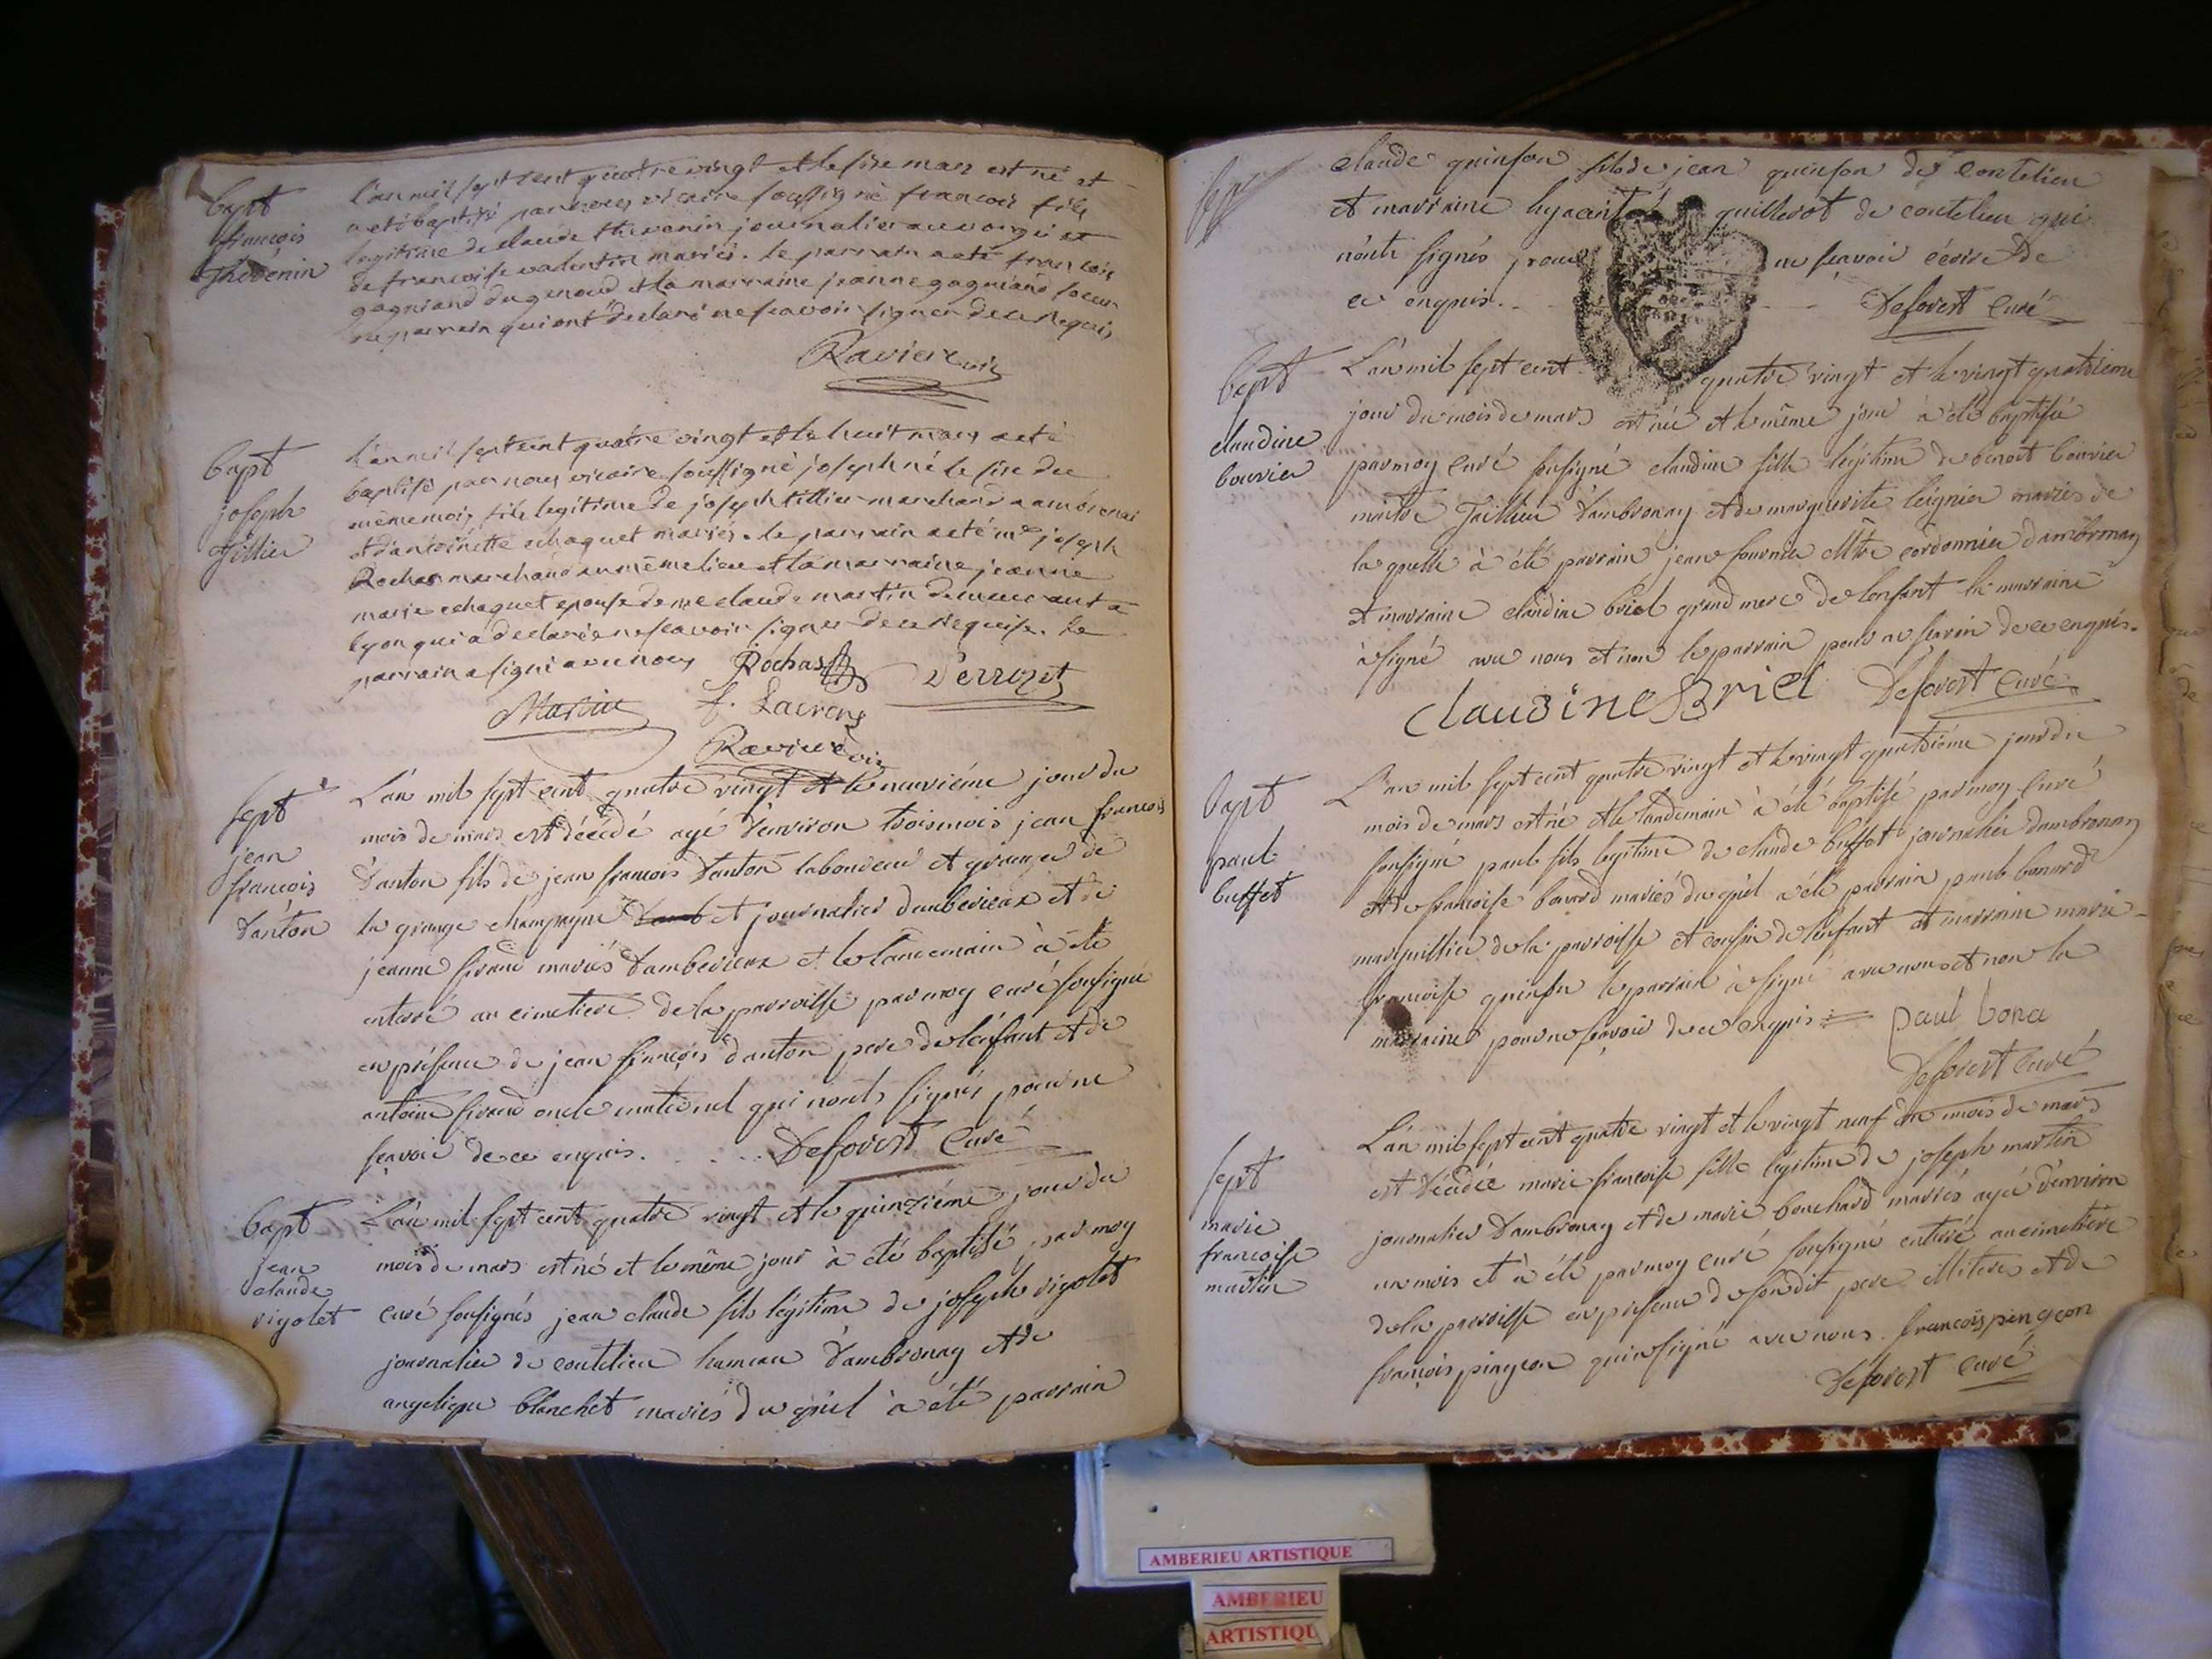 bapt
françois
Thévénin
L'an mil sept cent quatre vingt et le sixe mars est né et
a eté baptisé par nous vicaire soussigné françois fils
legitime de claude thevenin journalier au vorgi et
de francoise valentin mariés. le parrain a eté françois
gagniand du genoud et la marraine jeanne gagniand soeur
du parrain qui ont declaré ne scavoir signer de ce requis
Raviere vic
bapt
joseph
tillier
L'an mil sept cent quatre vingt et le huit mars a eté
baptisé par nous vicaire soussigné joseph né le sixe du
même mois fils legitime de joseph tillier marchand a ambronai
et d'antoinette chaquet mariés. le parrain a eté mre joseph
Rochas marchand au même lieu et la marraine jeanne
marie chaquet epouse de me claude martin demeurant a
lyon qui a declaré ne scavoir signer de ce requise. Le
parrain a signé avec nous Rochas Perrozet
Martin f. Laurens
Raviere vic
sept
jean
françois
d'anton
L'an mil sept cent quatre vingt et le neuviéme jour du
mois de mars est décédé agé d'environ trois mois jean françois
d'anton fils de jean françois d'anton laboureur et granger de
la grange champagne et journalier d'amberieux et de
jeanne siraud mariés d'amberieux et le landemain à été
enterré au cimetiere de la parroisse par moy curé sousigné
en présence de jean françois d'anton pere de l'enfant et de
antoine siraud oncle maternel qui n'onts signés pour ne
sçavoir de ce enquis. . . . . Deforest Curé
bapt
jean
claude
rigolet
L'an mil sept cent quatre vingt et le quinziéme jour du
mois de mars est né et le même jour à été baptisé par moy
curé sousignés jean claude fils légitime de joseph rigolet
journalier de coutelieu hameau d'ambronay et de
angelique blanchet mariés du quel à été parrain
claude quinson fils de jean quinson de coutelieu
et marraine hyacinte guillerot de coutelieu qui
n'onts signés pour ne sçavoir écrire de
ce enquis. Deforest Curé
bapt
claudine
bouvier
L'an mil sept cent quatre vingt et le vingt quatriéme
jour du mois de mars est née et le même jour à été baptisée
par moy curé sousigné claudine fille légitime de benoit bouvier
maitre Taillieu d'ambronay et de marguerite leignier mariés de
la quelle à été parrain jean fournier Mtre cordonnier d'ambronay
et marraine claudine briel grand mere de l'enfant la marraine
à signé avec nous et non le parrain pour ne sçavoir de ce enquis.
claudine Briel Deforest Curé
bapt
paul
buffet
L'an mil sept cent quatre vingt et le vingt quatriéme jour du
mois de mars est né et le landemain à été baptisé par moy curé
sousigné paul fils legitime de claude buffet journalier d'ambronay
et de françoise bonard mariés du quel à été parrain paul bonard
marguillier de la parroisse et cousin de l'enfant et marraine marie
françoise quinson le parrain à signé avec nous et non la
marraine pour ne sçavoir de ce enquis paul bona
Deforest curé
sept
marie
francoise
martin
L'an mil sept cent quatre vingt et le vingt neuf du mois de mars
est décédée marie françoise fille légitime de joseph martin
journalier d'ambronay et de marie bouchard mariés agée d'environ
un mois et à été par moy curé sousigné enterré au cimetiere
de la parroisse en présence de son dit pere illiteré et de
françois pingeon qui à signé avec nous. francois pingeon
Deforest curé
AMBERIEU ARTISTIQUE
AMBERIEU
ARTISTIQU